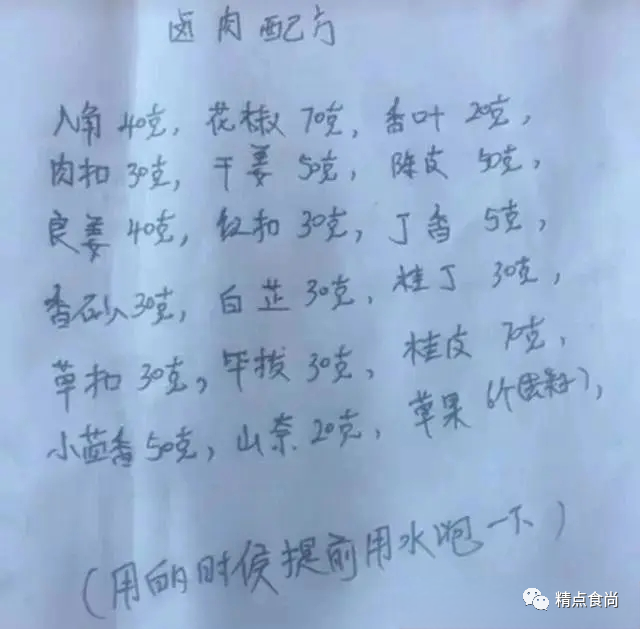 卤肉配方
八角40克，花椒70克，香叶20克，
肉扣30克，干姜50克，陈皮50克，
良姜40克，红扣30克，丁香5克，
香砂30克，白芷30克，桂丁30克，
草扣30克，毕拔30克，桂皮70克，
小茴香50克，山奈20克，草果6个(去籽)，
(用的时候提前用水泡一下)
精点食尚